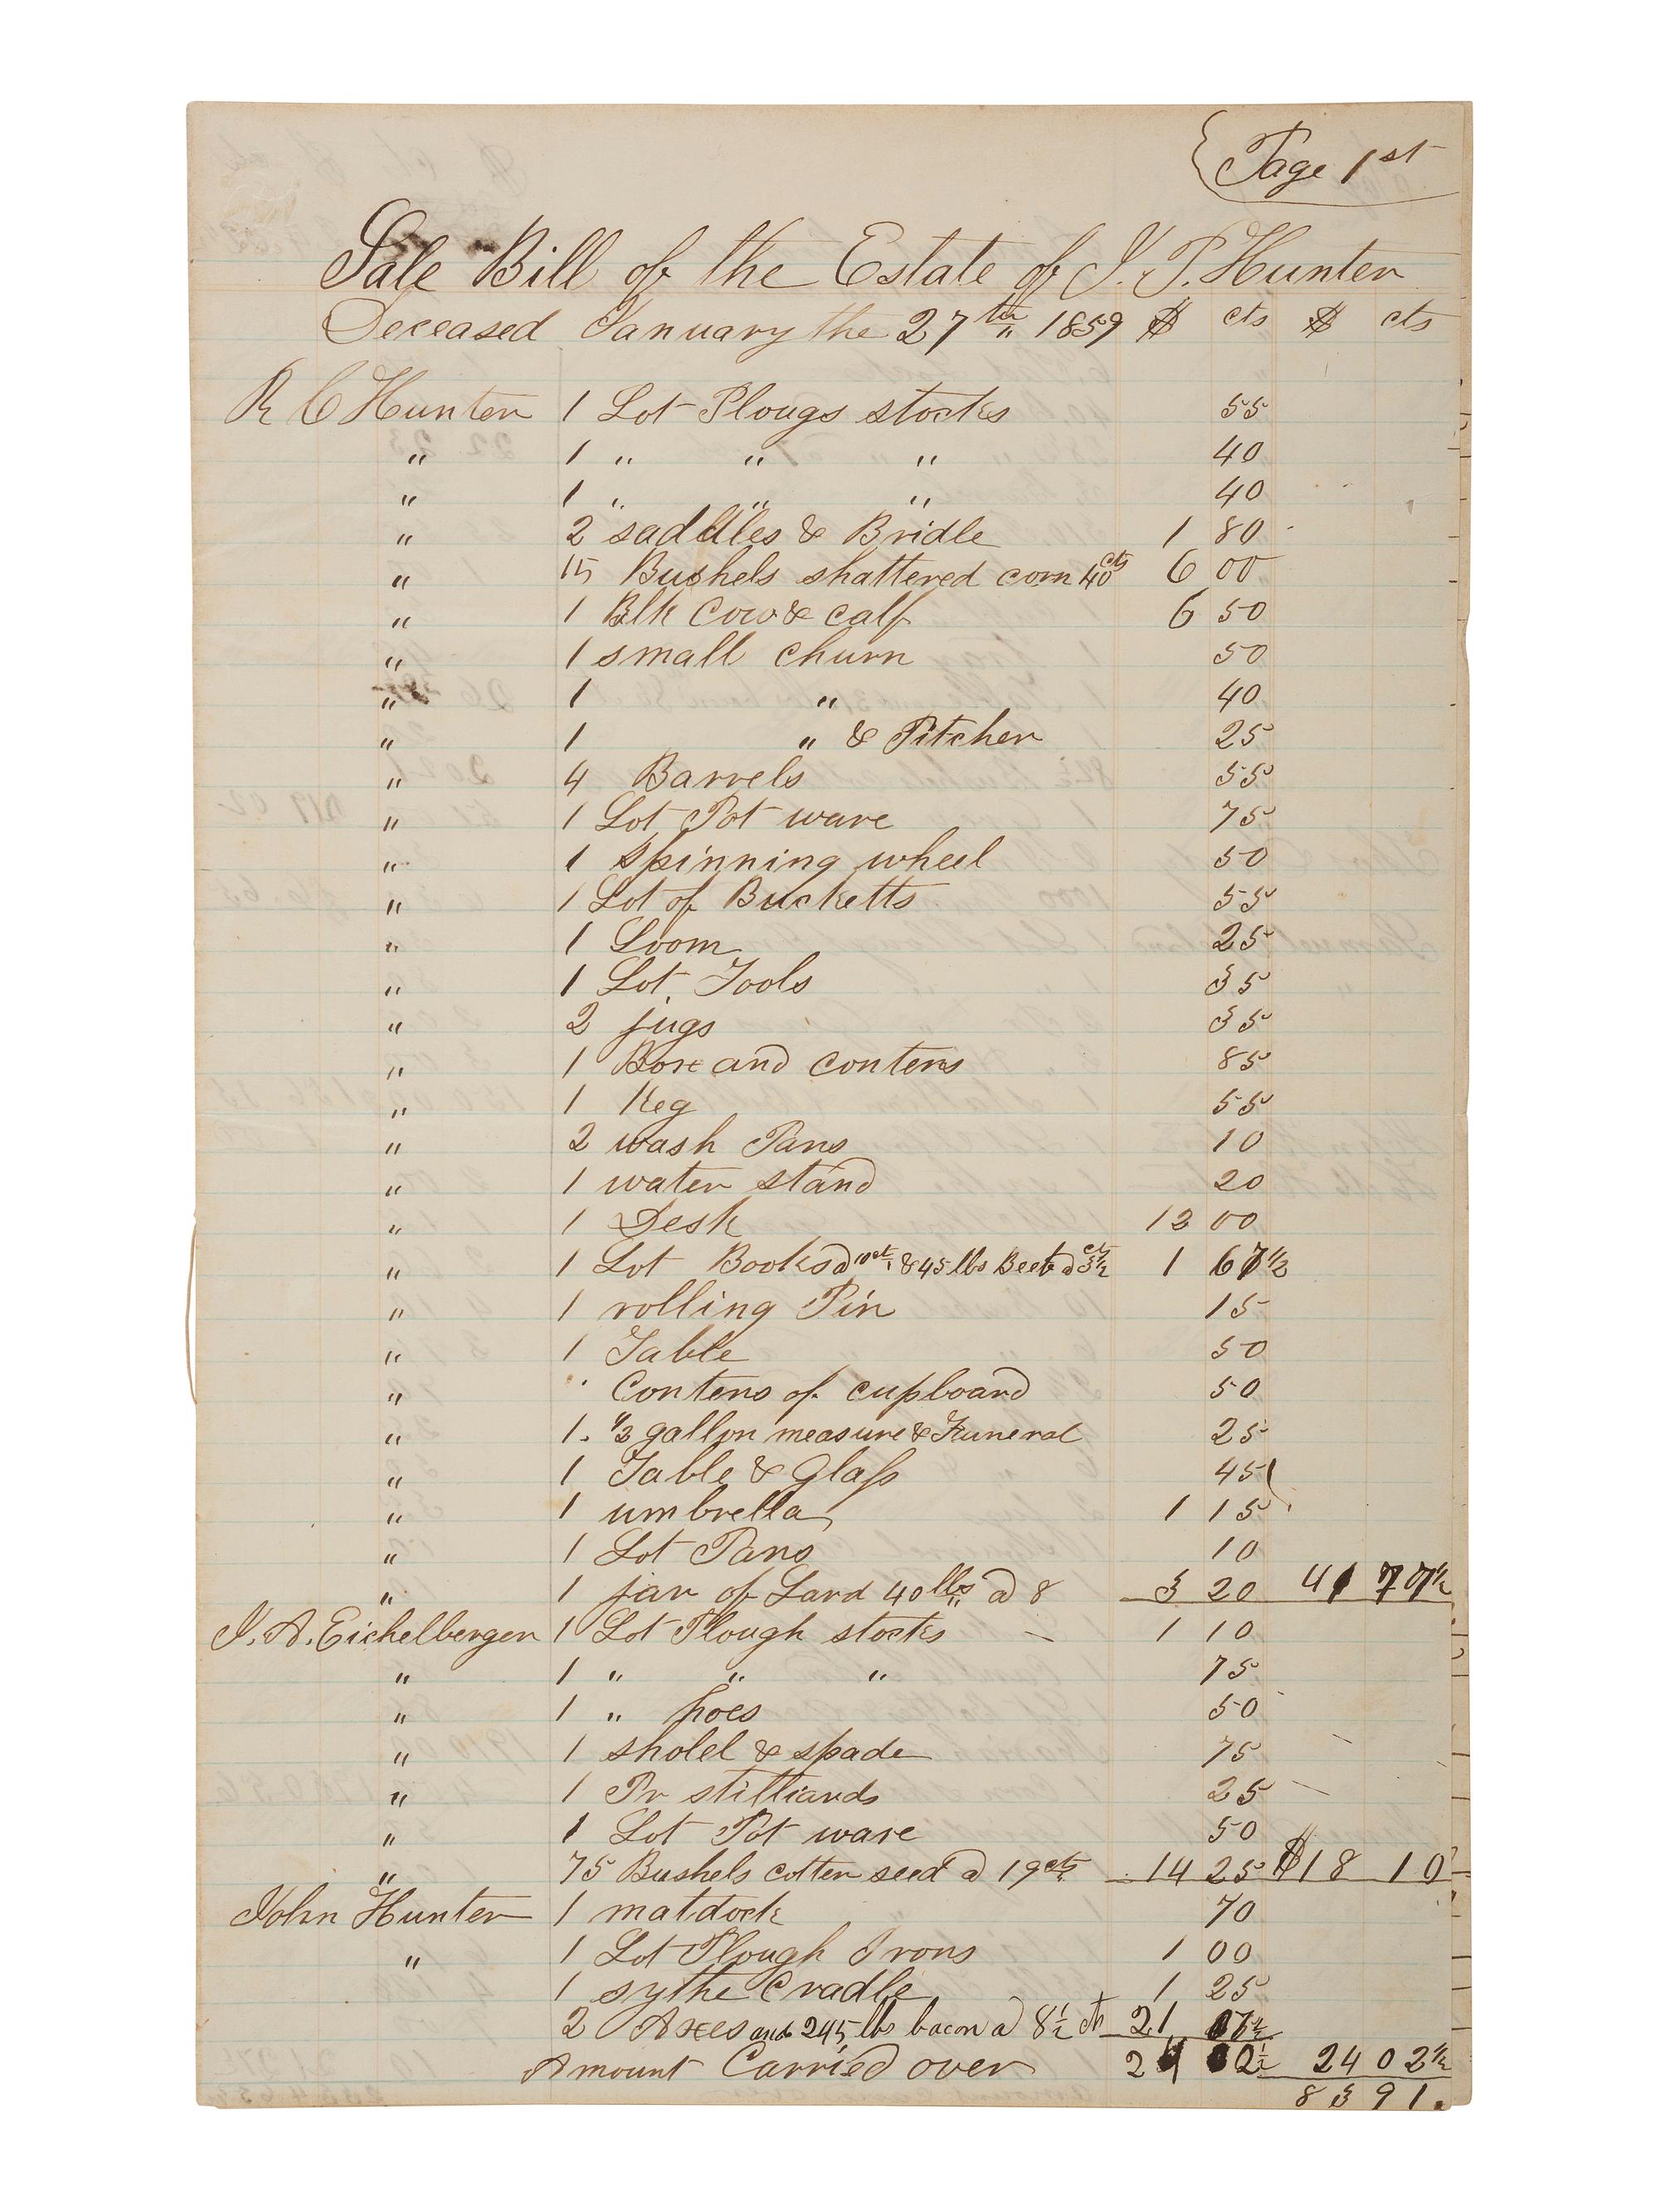 Page 1st
Sale Bill of the Estate of J. P. Hunter
Deceased January the 27th 1859 $ cts $ cts
R C Hunter 1 Lot Plougs stocks 55
" 1 " " " 40
" 1 " " " 40
" 2 saddles & Bridle 1 80
" 15 Bushels shattered corn 40cts 6 00
" 1 Blk Cow & calf 6 50
" 1 small churn 50
" 1 " 40
" 1 " & Pitcher 25
" 4 Barrels 55
" 1 Lot Pot ware 75
" 1 spinning wheel 50
" 1 Lot of Bucketts 55
" 1 Loom 25
" 1 Lot Tools 35
" 2 jugs 35
" 1 Box and contens 85
" 1 Keg 55
" 2 wash Pans 10
" 1 water stand 20
" 1 Desk 12 00
" 1 Lot Books a 10ct & 45 lbs Beef a 3½ct 1 67½
" 1 rolling Pin 15
" 1 Table 50
" Contens of cupboard 50
" 1. ½ gallon measure & Funeral 25
" 1 Table & Glass 45
" 1 umbrella 1 15
" 1 Lot Pans 10
" 1 jar of Lard 40 lbs a 8 3 20 41 77½
J. A. Eichelberger 1 Lot Plough stocks 1 10
" 1 " " " 75
" 1 " hoes 50
" 1 sholel & spade 75
" 1 Pr stilliards 25
" 1 Lot Pot ware 50
" 75 Bushels cotten seed a 19cts 14 25 $18 10
John Hunter 1 matdock 70
" 1 Lot Plough Irons 1 00
1 sythe Cradle 1 25
2 Axes and 245 lbs bacon a 8½ cts 21 07½
Amount Carried over 24 02½ 24 02½
83 91.